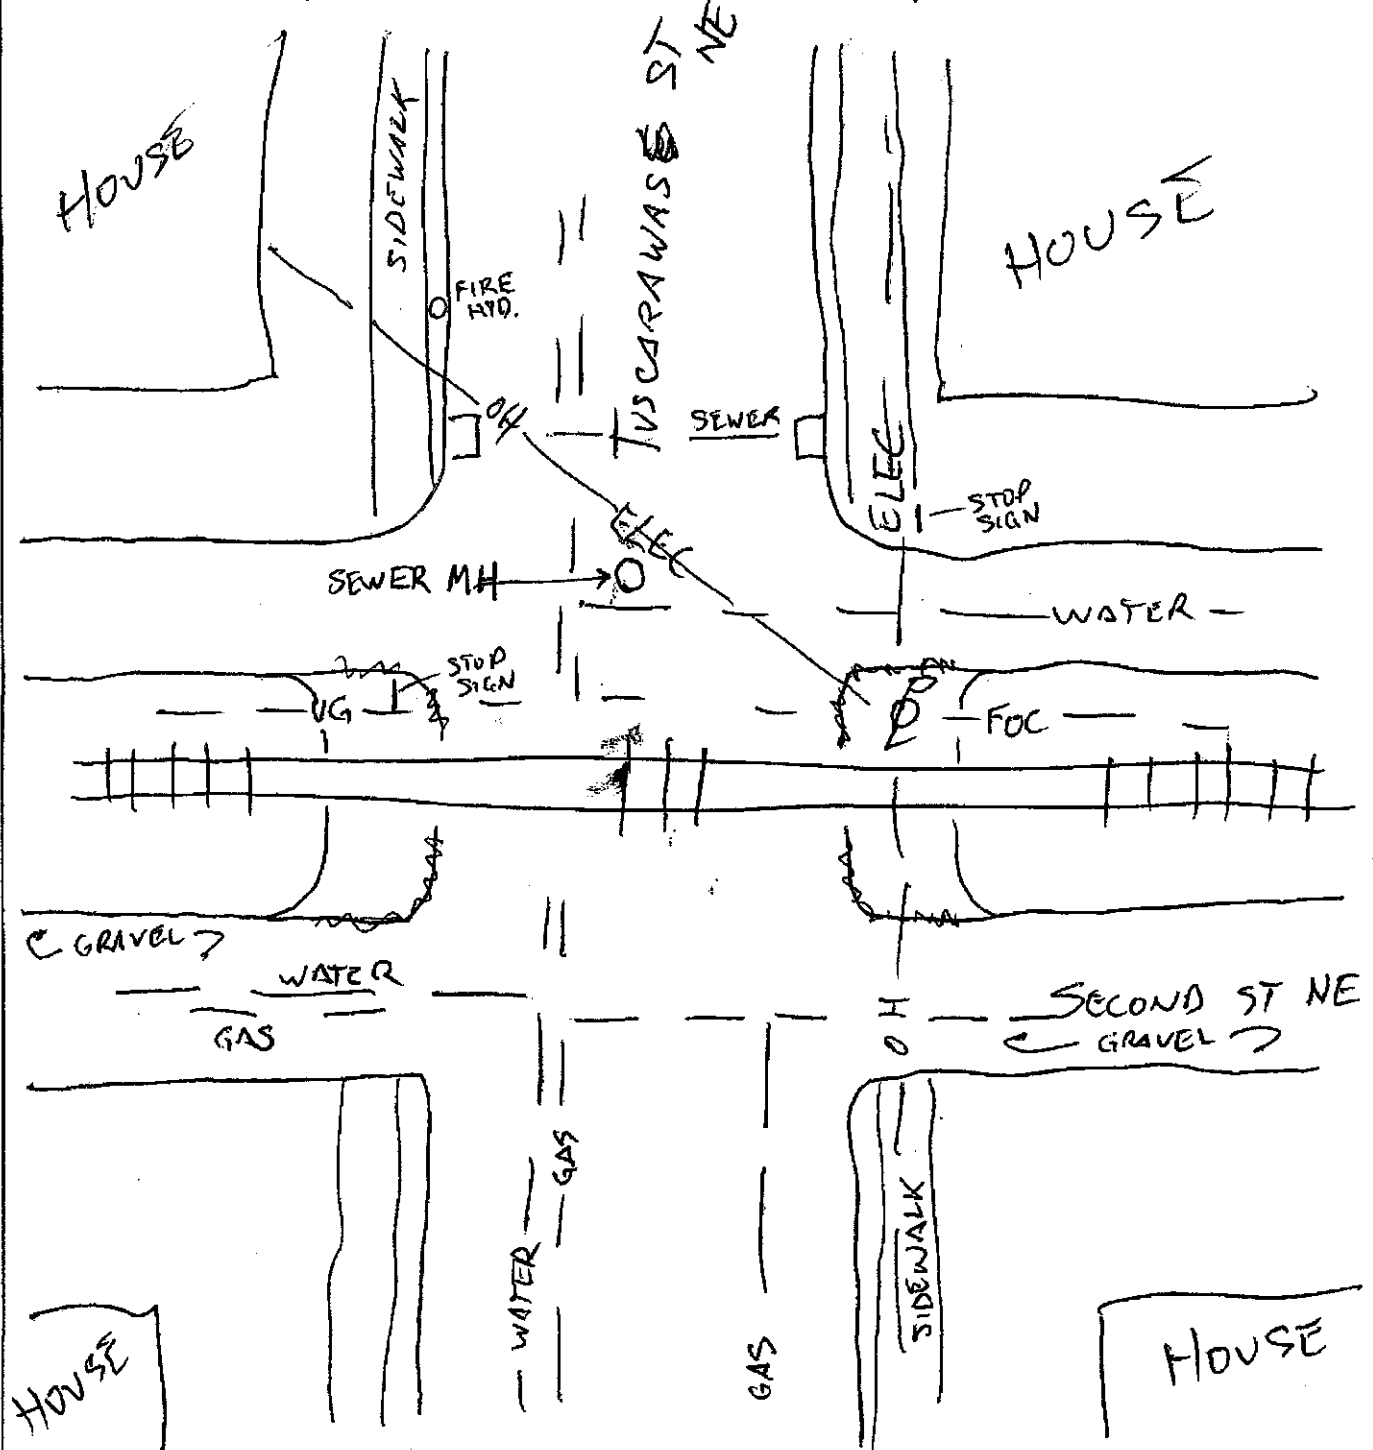 TUSCARAWAS ST
NE
HOUSE
SIDEWALK
HOUSE
FIRE
HYD.
OH
SEWER
ELEC
STOP
SIGN
ELEC
SEWER MH
WATER
STOP
SIGN
UG
FOC
GRAVEL
WATER
GAS
OH
SECOND ST NE
GRAVEL
GAS
WATER
GAS
SIDEWALK
HOUSE
HOUSE